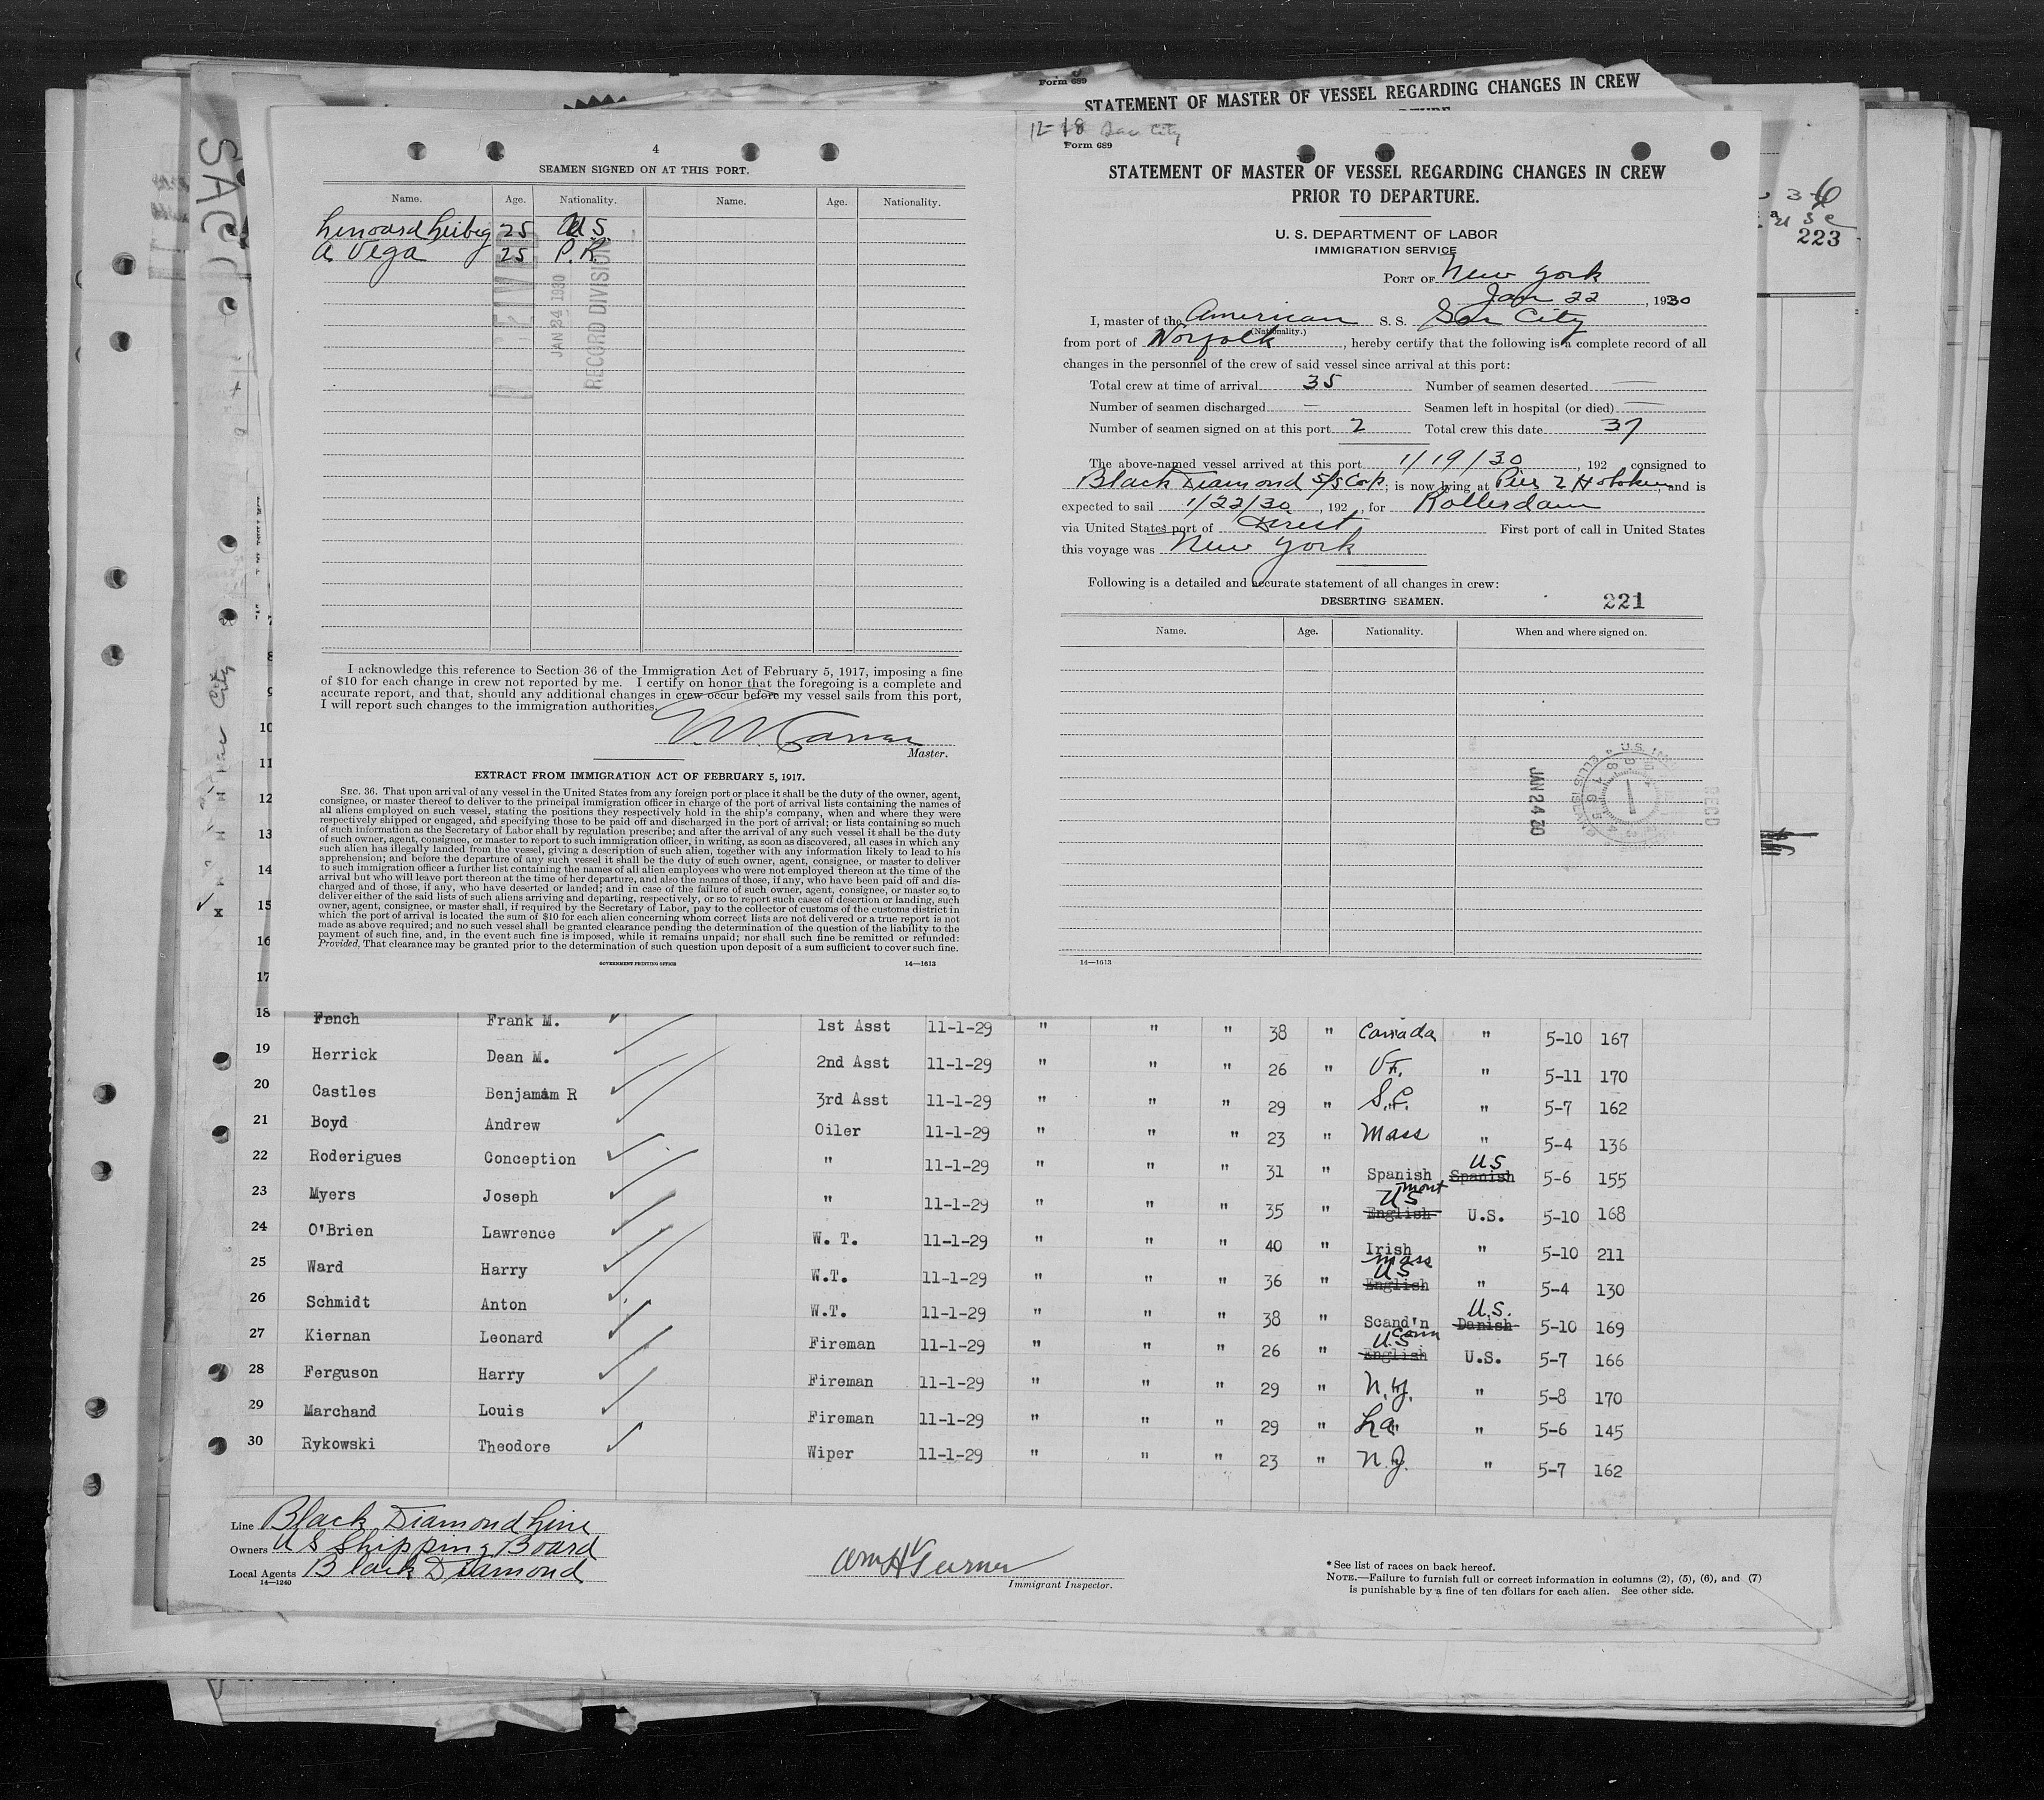 Form 689
STATEMENT OF MASTER OF VESSEL REGARDING CHANGES IN CREW
223
4
SEAMEN SIGNED ON AT THIS PORT.
Name. Age. Nationality. Name. Age. Nationality.
Lenoard Leibig 25 U.S.
A. Vega 25 P.R.
JAN 24 1930
RECORD DIVISION
I acknowledge this reference to Section 36 of the Immigration Act of February 5, 1917, imposing a fine
of $10 for each change in crew not reported by me. I certify on honor that the foregoing is a complete and
accurate report, and that, should any additional changes in crew occur before my vessel sails from this port,
I will report such changes to the immigration authorities.
Master.
EXTRACT FROM IMMIGRATION ACT OF FEBRUARY 5, 1917.
SEC. 36. That upon arrival of any vessel in the United States from any foreign port or place it shall be the duty of the owner, agent,
consignee, or master thereof to deliver to the principal immigration officer in charge of the port of arrival lists containing the names of
all aliens employed on such vessel, stating the positions they respectively hold in the ship's company, when and where they were
respectively shipped or engaged, and specifying those to be paid off and discharged in the port of arrival; or lists containing so much
of such information as the Secretary of Labor shall by regulation prescribe; and after the arrival of any such vessel it shall be the duty
of such owner, agent, consignee, or master to report to such immigration officer, in writing, as soon as discovered, all cases in which any
such alien has illegally landed from the vessel, giving a description of such alien, together with any information likely to lead to his
apprehension; and before the departure of any such vessel it shall be the duty of such owner, agent, consignee, or master to deliver
to such immigration officer a further list containing the names of all alien employees who were not employed thereon at the time of the
arrival but who will leave port thereon at the time of her departure, and also the names of those, if any, who have been paid off and dis-
charged and of those, if any, who have deserted or landed; and in case of the failure of such owner, agent, consignee, or master so to
deliver either of the said lists of such aliens arriving and departing, respectively, or so to report such cases of desertion or landing, such
owner, agent, consignee, or master shall, if required by the Secretary of Labor, pay to the collector of customs of the customs district in
which the port of arrival is located the sum of $10 for each alien concerning whom correct lists are not delivered or a true report is not
made as above required; and no such vessel shall be granted clearance pending the determination of the question of the liability to the
payment of such fine, and, in the event such fine is imposed, while it remains unpaid; nor shall such fine be remitted or refunded:
Provided, That clearance may be granted prior to the determination of such question upon deposit of a sum sufficient to cover such fine.
GOVERNMENT PRINTING OFFICE 14—1613
12-18 Sac City
Form 689
STATEMENT OF MASTER OF VESSEL REGARDING CHANGES IN CREW
PRIOR TO DEPARTURE.
U. S. DEPARTMENT OF LABOR
IMMIGRATION SERVICE
PORT OF New York
Jan 22, 1930
I, master of the American S. S. Sac City
(Nationality.)
from port of Norfolk, hereby certify that the following is a complete record of all
changes in the personnel of the crew of said vessel since arrival at this port:
Total crew at time of arrival 35 Number of seamen deserted —
Number of seamen discharged — Seamen left in hospital (or died) —
Number of seamen signed on at this port 2 Total crew this date 37
The above-named vessel arrived at this port 1/19/30, 192 consigned to
Black Diamond S/S Corp; is now lying at Pier 2 Hoboken, and is
expected to sail 1/22/30, 192, for Rotterdam
via United States port of Direct First port of call in United States
this voyage was New York
Following is a detailed and accurate statement of all changes in crew:
DESERTING SEAMEN. 221
Name. Age. Nationality. When and where signed on.
JAN 24 30
RECD
14—1613
8
9
10
11
12
13
14
15
16
17
18 Fench Frank M. 1st Asst 11-1-29 " " " 38 " Canada " 5-10 167
19 Herrick Dean M. 2nd Asst 11-1-29 " " " 26 " Vt. " 5-11 170
20 Castles Benjamin R 3rd Asst 11-1-29 " " " 29 " S.C. " 5-7 162
21 Boyd Andrew Oiler 11-1-29 " " " 23 " Mass " 5-4 136
22 Roderigues Conception " 11-1-29 " " " 31 " Spanish Spanish US 5-6 155
23 Myers Joseph " 11-1-29 " " " 35 " English US Mont U.S. 5-10 168
24 O'Brien Lawrence W. T. 11-1-29 " " " 40 " Irish " 5-10 211
25 Ward Harry W.T. 11-1-29 " " " 36 " English US Mass " 5-4 130
26 Schmidt Anton W.T. 11-1-29 " " " 38 " Scand'n Danish U.S. 5-10 169
27 Kiernan Leonard Fireman 11-1-29 " " " 26 " English U.S. Conn U.S. 5-7 166
28 Ferguson Harry Fireman 11-1-29 " " " 29 " N.Y. " 5-8 170
29 Marchand Louis Fireman 11-1-29 " " " 29 " La. " 5-6 145
30 Rykowski Theodore Wiper 11-1-29 " " " 23 " N.J. " 5-7 162
Line Black Diamond Line
Owners U S Shipping Board
Local Agents Black Diamond
14—1240
Wm H Turner
Immigrant Inspector.
* See list of races on back hereof.
NOTE.—Failure to furnish full or correct information in columns (2), (5), (6), and (7)
is punishable by a fine of ten dollars for each alien. See other side.